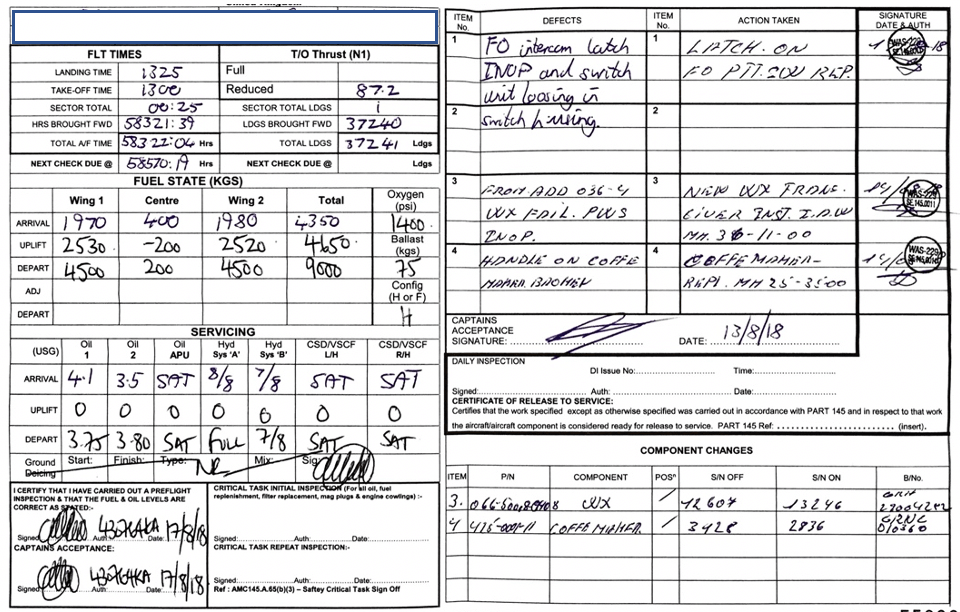 FLT TIMES T/O Thrust (N1)
LANDING TIME 1325 Full
TAKE-OFF TIME 1300 Reduced 87.2
SECTOR TOTAL 00:25 SECTOR TOTAL LDGS 1
HRS BROUGHT FWD 58321:39 LDGS BROUGHT FWD 37240
TOTAL A/F TIME 58322:04 Hrs TOTAL LDGS 37241 Ldgs
NEXT CHECK DUE @ 58570:19 Hrs NEXT CHECK DUE @ Ldgs
FUEL STATE (KGS)
Wing 1 Centre Wing 2 Total Oxygen (psi)
ARRIVAL 1970 400 1980 4350 1400
UPLIFT 2530 -200 2520 4650 Ballast (kgs)
DEPART 4500 200 4500 9000 75
ADJ Config (H or F)
DEPART H
SERVICING
(USG) Oil 1 Oil 2 Oil APU Hyd Sys 'A' Hyd Sys 'B' CSD/VSCF L/H CSD/VSCF R/H
ARRIVAL 4.1 3.5 SAT 8/8 7/8 SAT SAT
UPLIFT 0 0 0 0 0 0 0
DEPART 3.75 3.80 SAT FULL 7/8 SAT SAT
Ground Deicing Start: Finish: Type: Mix: Sig
I CERTIFY THAT I HAVE CARRIED OUT A PREFLIGHT
INSPECTION & THAT THE FUEL & OIL LEVELS ARE
CORRECT AS STATED:-
Signed Auth 430764KA Date: 17/8/18
CAPTAINS ACCEPTANCE:
Signed Auth 430764KA Date: 17/8/18
CRITICAL TASK INITIAL INSPECTION (For all oil, fuel
replenishment, filter replacement, mag plugs & engine cowlings) :-
Signed: Auth: Date:
CRITICAL TASK REPEAT INSPECTION:-
Signed: Auth: Date:
Ref : AMC145.A.65(b)(3) – Saftey Critical Task Sign Off
ITEM No. DEFECTS ITEM No. ACTION TAKEN SIGNATURE DATE & AUTH
1 FO intercom latch 1 LATCH ON
INOP and switch FO PTT. SW REP.
unit loosing in
2 switch housing. 2
3 FROM ADD 036-4 3 NEW WX TRANS.
WX FAIL. PWS CIVER INST. I.A.W
INOP. MM. 36-11-00
4 HANDLE ON COFFE 4 COFFE MAHER
MAHRA BROHEN REPL. MM 25-35-00
CAPTAINS
ACCEPTANCE
SIGNATURE: DATE: 13/8/18
DAILY INSPECTION
DI Issue No: Time:
Signed: Auth: Date:
CERTIFICATE OF RELEASE TO SERVICE:
Certifies that the work specified except as otherwise specified was carried out in accordance with PART 145 and in respect to that work
the aircraft/aircraft component is considered ready for release to service. PART 145 Ref: (insert).
COMPONENT CHANGES
ITEM P/N COMPONENT POSº S/N OFF S/N ON B/No.
3. WX / 12607 13246 GRN
4 COFFE MAHER / 3428 2836